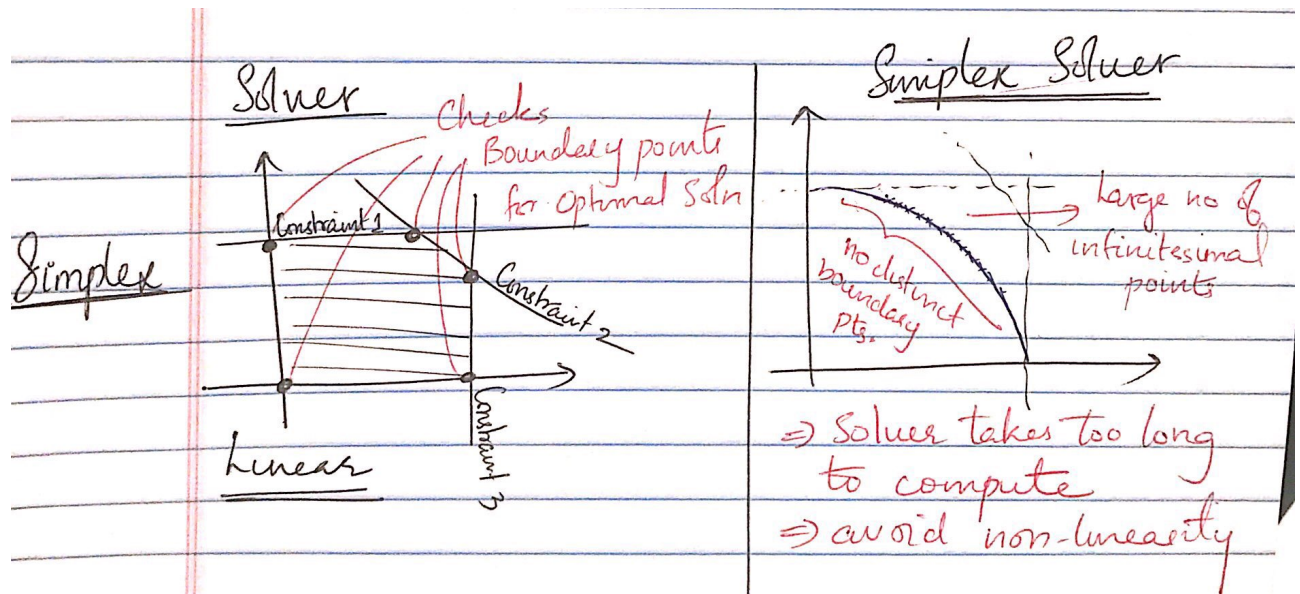 Solver
Checks
Boundary points
for optimal Soln
Constraint 1
Simplex
Constraint 2
Constraint 3
Linear
Simplex Solver
Large no of
infinitesimal
points
no distinct
boundary
pts.
⇒ Solver takes too long
to compute
⇒ avoid non-linearity